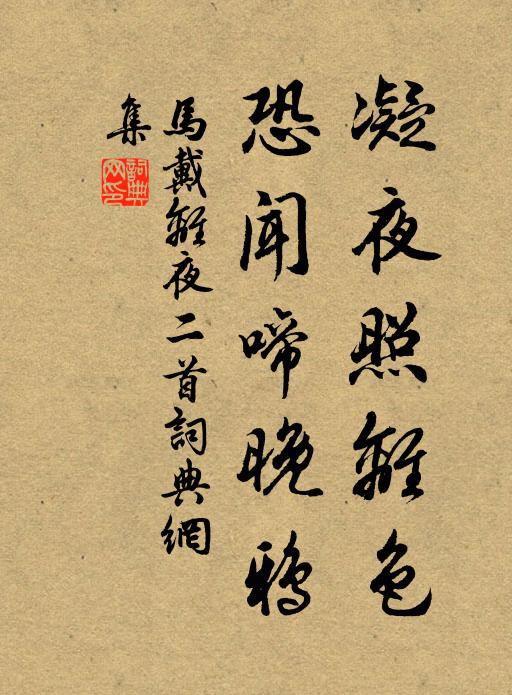 凝夜照離色
恐聞啼晚鴉
馬戴離夜二首詞典網
集
詞典
网印